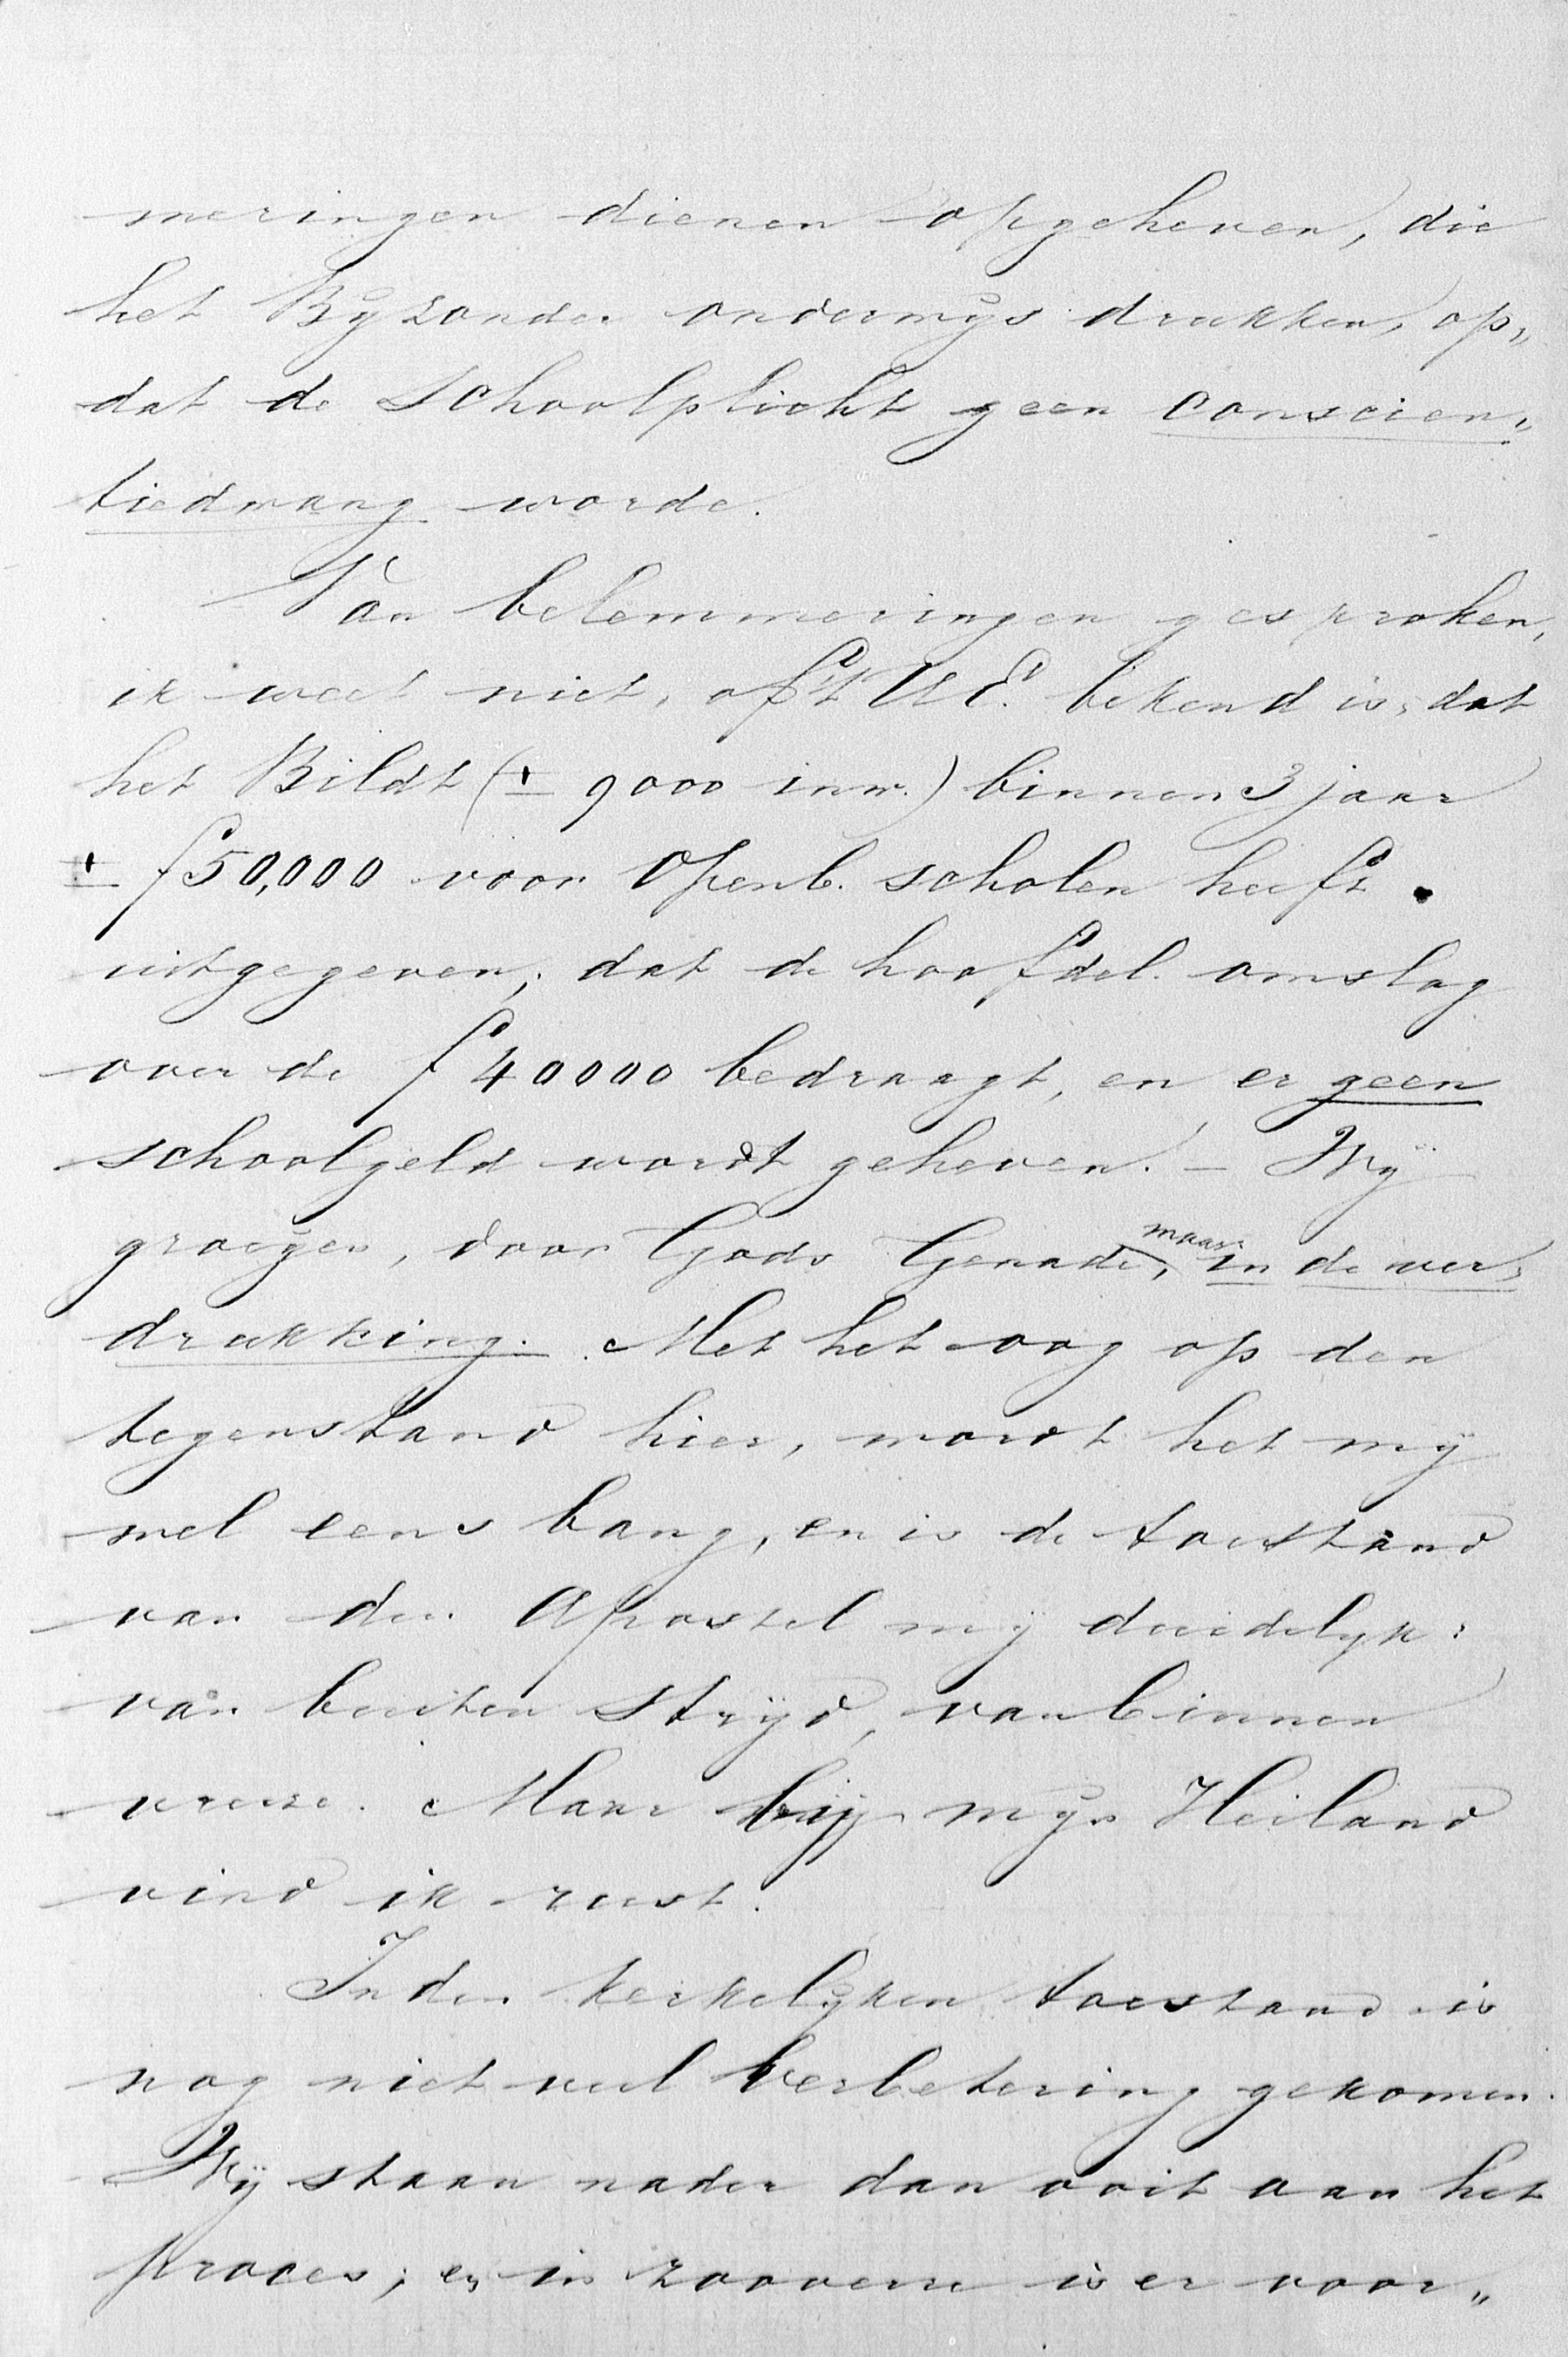 meringen dienen opgeheven, die
het Byzonder onderwijs drukken, op„
dat de Schoolplicht geen conscien„
tiedwang worde.
Van belemmeringen gesproken,
ik weet niet, of 't UE. bekend is, dat
het Bildt (± 9000 inw.) binnen 3 jaar
± ƒ50,000 voor Openb. scholen heeft
uitgegeven; dat de hoofdel. omslag
over de ƒ 40000 bedraagt, en er geen
schoolgeld wordt geheven. – Wij
groeijen, door Gods Genade, maar in de ver„
drukking. Met het oog op den
tegenstand hier, wordt het mij
wel eens bang, en is de toestand
van den Apostel mij duidelyk:
van buiten strijd, van binnen
vreeze. Maar bij mijn Heiland
vind ik rust.
In den kerkelijken toestand is
nog niet veel verbetering gekomen.
Wij staan nader dan ooit aan het
proces; en in zooverre is er voor„